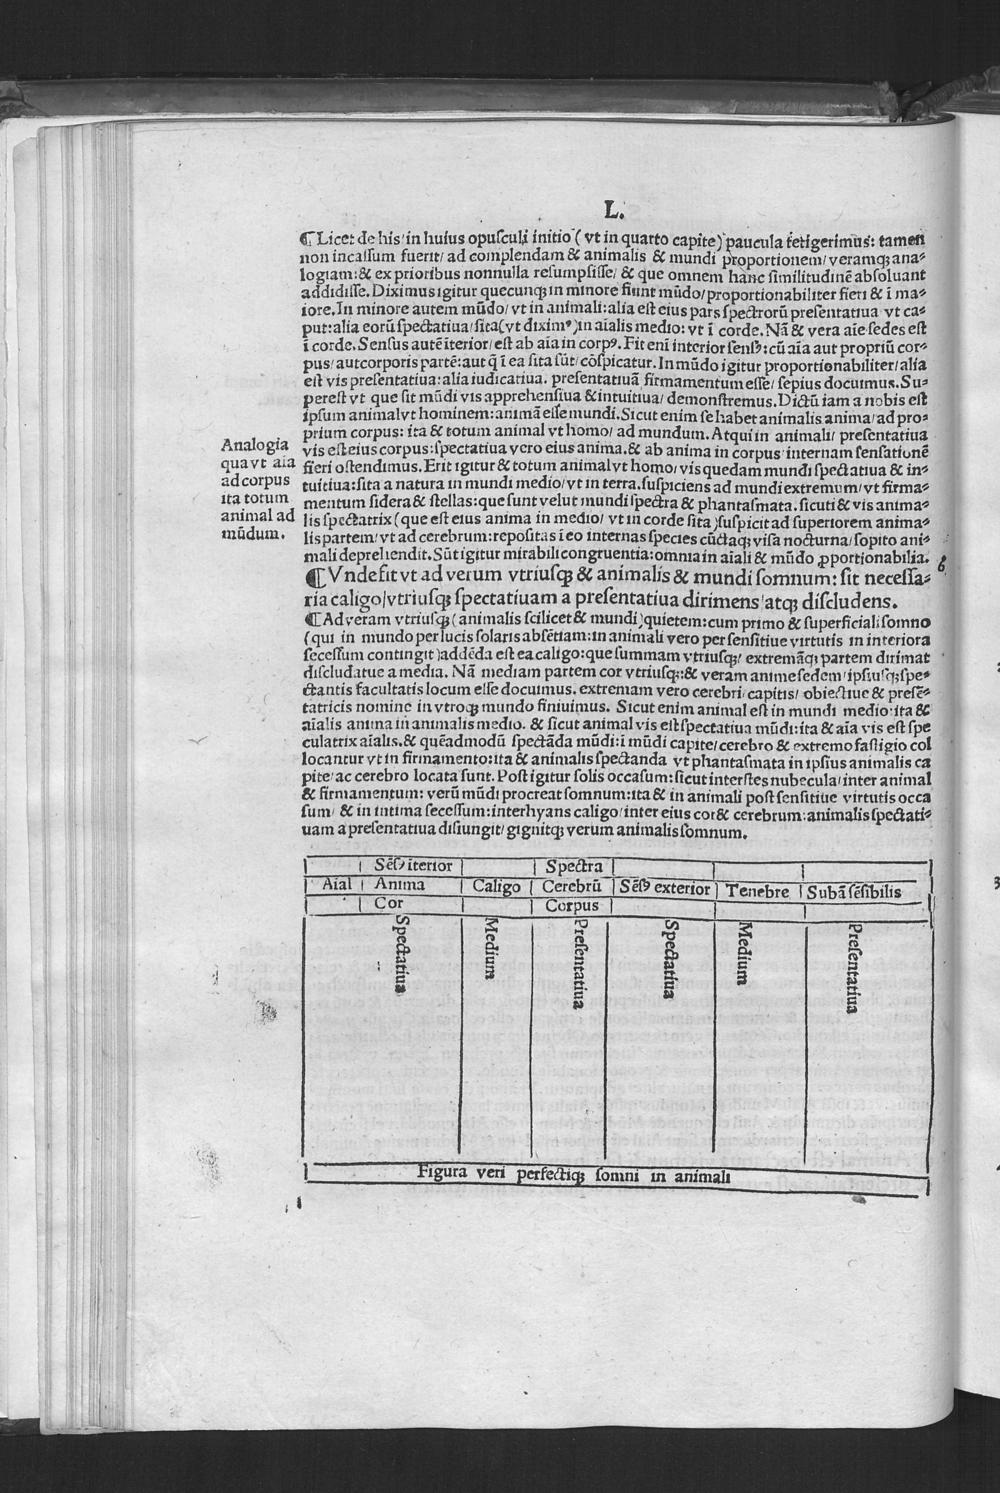 L.
¶ Licet de his/ in huius opusculi initio ( vt in quarto capite ) paucula tetigerimus: tamen
non incassum fuerit/ ad complendam & animalis & mundi proportionem/ veramqꝫ ana⸗
logiam: & ex prioribus nonnulla resumpsisse/ & que omnem hanc similitudinē absoluant
addidisse. Diximus igitur quecunqꝫ in minore fiunt mūdo/ proportionabiliter fieri & ī ma⸗
iore. In minore autem mūdo/ vt in animali: alia est eius pars spectrorū presentatiua vt ca⸗
put: alia eorū spectatiua/ sita ( vt diximꝰ ) in aīalis medio: vt ī corde. Nā & vera aīe sedes est
ī corde. Sensus autē īterior/ est ab aīa in corpꝰ. Fit enī interior sensꝰ: cū aīa aut propriū cor⸗
pus/ aut corporis partē: aut q̄ ī ea sita sūt/ cōspicatur. In mūdo igitur proportionabiliter/ alia
est vis presentatiua: alia iudicatiua. presentatiuā firmamentum esse/ sepius docuimus. Su⸗
perest vt que sit mūdi vis apprehensiua & intuitiua/ demonstremus. Dictū iam a nobis est
ipsum animal vt hominem: animā esse mundi. Sicut enim se habet animalis anima/ ad pro⸗
prium corpus: ita & totum animal vt homo/ ad mundum. Atqui in animali/ presentatiua
vis est eius corpus: spectatiua vero eius anima. & ab anima in corpus internam sensationē
fieri ostendimus. Erit igitur & totum animal vt homo/ vis quedam mundi spectatiua & in⸗
tuitiua: sita a natura in mundi medio/ vt in terra. suspiciens ad mundi extremum/ vt firma⸗
mentum sidera & stellas: que sunt velut mundi spectra & phantasmata. sicuti & vis anima⸗
lis spectatrix ( que est eius anima in medio/ vt in corde sita ) suspicit ad superiorem anima⸗
lis partem/ vt ad cerebrum: repositas ī eo internas species cūctaqꝫ visa nocturna/ sopito ani⸗
mali deprehendit. Sūt igitur mirabili congruentia: omnia in aīali & mūdo ꝓportionabilia.
Analogia
qua vt aīa
ad corpus
ita totum
animal ad
mūdum.
6
¶ Vnde fit vt ad verum vtriusqꝫ & animalis & mundi somnum: sit necessa⸗
ria caligo/ vtriusqꝫ spectatiuam a presentatiua dirimens atqꝫ discludens.
¶ Ad veram vtriusqꝫ ( animalis scilicet & mundi ) quietem: cum primo & superficiali somno
( qui in mundo per lucis solaris absētiam: in animali vero per sensitiue virtutis in interiora
secessum contingit ) addēda est ea caligo: que summam vtriusqꝫ/ extremāqꝫ partem dirimat
discludatue a media. Nā mediam partem cor vtriusqꝫ: & veram anime sedem/ ipsiusqꝫ spe⸗
ctantis facultatis locum esse docuimus. extremam vero cerebri/ capitis/ obiectiue & presē⸗
tatricis nomine in vtroqꝫ mundo finiuimus. Sicut enim animal est in mundi medio: ita &
aīalis anima in animalis medio. & sicut animal vis est spectatiua mūdi: ita & aīa vis est spe
culatrix aīalis. & quēadmodū spectāda mūdi: ī mūdi capite/ cerebro & extremo fastigio col
locantur vt in firmamento: ita & animalis spectanda vt phantasmata in ipsius animalis ca
pite/ ac cerebro locata sunt. Post igitur solis occasum: sicut interstes nubecula/ inter animal
& firmamentum: verū mūdi procreat somnum: ita & in animali post sensitiue virtutis occa
sum/ & in intima secessum: interhyans caligo/ inter eius cor & cerebrum: animalis spectati⸗
uam a presentatiua disiungit/ gignitqꝫ verum animalis somnum.
Sēsꝰ iterior Spectra
Aīal Anima Caligo Cerebrū Sēsꝰ exterior Tenebre Subā sēsibilis
Cor Corpus
Spectatiua Medium Presentatiua Spectatiua Medium Presentatiua
Figura veri perfectiqꝫ somni in animali